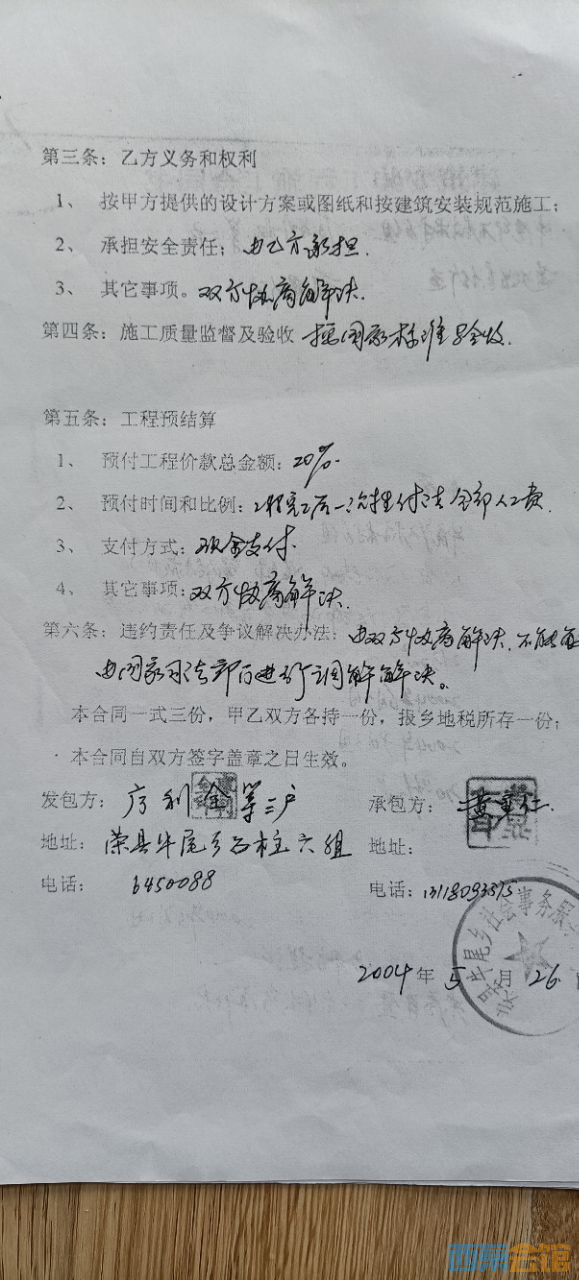 第三条：乙方义务和权利
1、 按甲方提供的设计方案或图纸和按建筑安装规范施工；
2、 承担安全责任；由乙方承担.
3、 其它事项。双方协商解决.
第四条：施工质量监督及验收 按国家标准验收.
第五条：工程预结算
1、 预付工程价款总金额：20%.
2、 预付时间和比例：工程完工后一次性付清全部人工费.
3、 支付方式：现金支付.
4、 其它事项：双方协商解决.
第六条：违约责任及争议解决办法：由双方协商解决.不能
由国家司法部门进行调解解决。
本合同一式三份，甲乙双方各持一份，报乡地税所存一份；
本合同自双方签字盖章之日生效。
发包方： 利金等三户
承包方：
地址：荣县牛尾乡石柱六组
地址：
电话： 6450088
电话：
牛尾乡社会事务服
2004年5月26
西蒙会馆